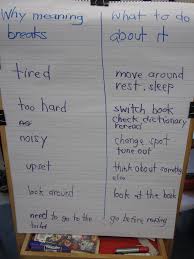 Why meaning breaks
What to do about it
tired
move around
rest, sleep
too hard
switch book
check dictionary
reread
noisy
change spot
tune out
upset
think about something
else
look around
look at the book
need to go to the
toilet
go before reading